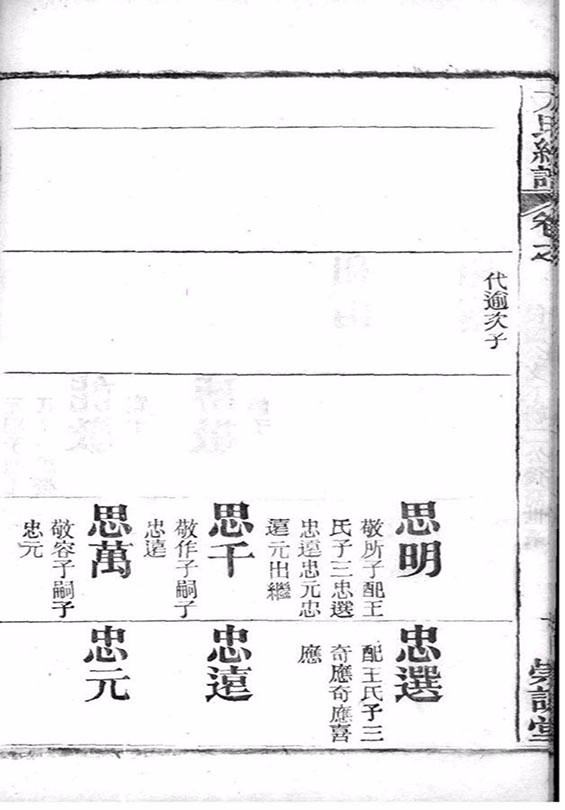 卷之
代逾次子
思明
敬所子配王
氏子三忠選
忠遠忠元忠
遠元出繼
思千
敬作子嗣子
忠遠
思萬
敬容子嗣子
忠元
忠選
配王氏子三
奇應奇應喜
應
忠遠
忠元